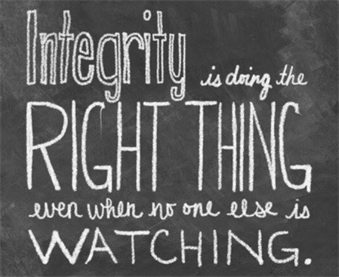 Integrity
is doing the
RIGHT THING
even when no one else is
WATCHING.